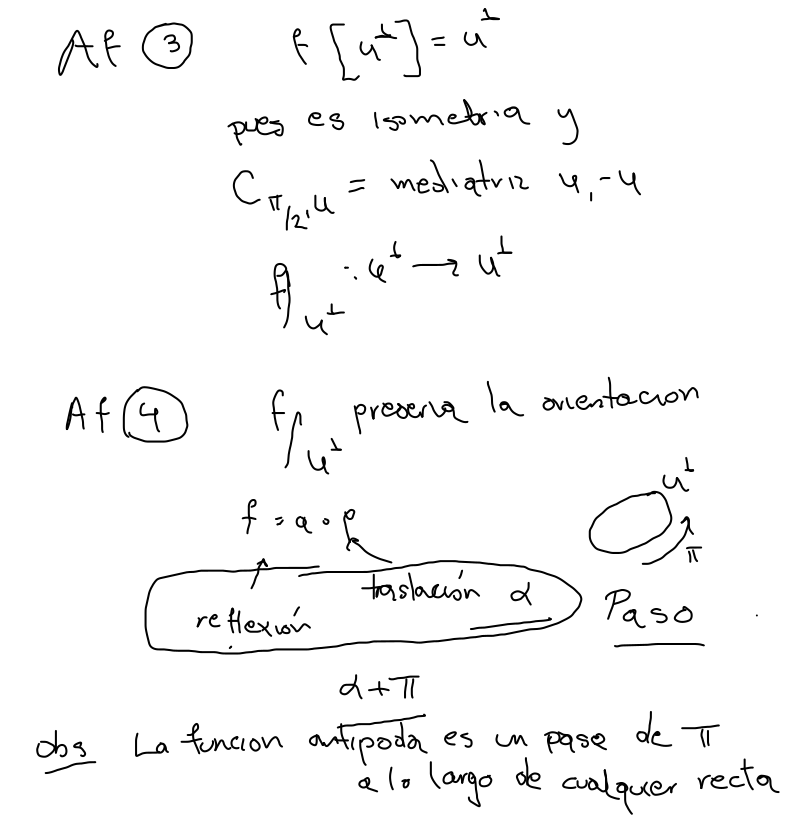 Af ③ f[u^⊥] = u^⊥
pues es isometria y
C_{π/2, u} = mediatriz u, -u
f|_{u^⊥} : u^⊥ → u^⊥
Af ④ f|_{u^⊥} preserva la orientacion
u^⊥
f = a ∘ ρ
π
traslación α
reflexión
Paso
α+π
obs La funcion antipoda es un paso de π
a lo largo de cualquer recta